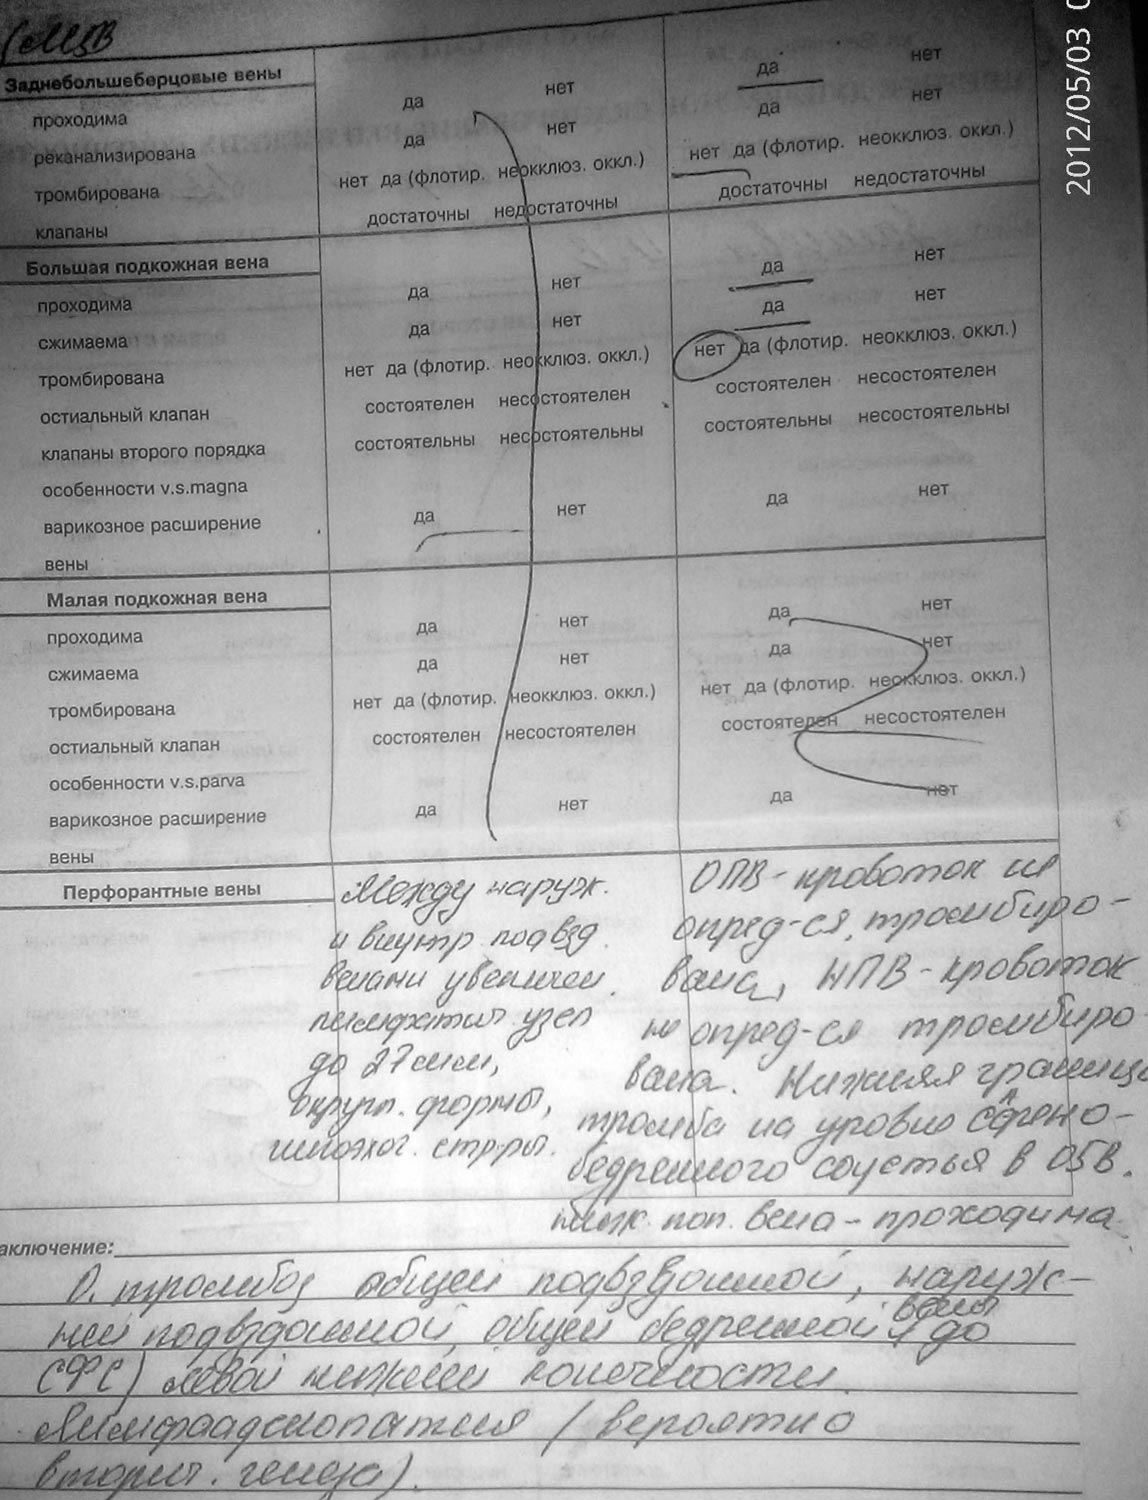 2012/05/03 0
Заднебольшеберцовые вены
проходима да нет да нет
реканализирована да нет да нет
тромбирована нет да (флотир. неокклюз. оккл.) нет да (флотир. неокклюз. оккл.)
клапаны достаточны недостаточны достаточны недостаточны
Большая подкожная вена
проходима да нет да нет
сжимаема да нет да нет
тромбирована нет да (флотир. неокклюз. оккл.) нет да (флотир. неокклюз. оккл.)
остиальный клапан состоятелен несостоятелен состоятелен несостоятелен
клапаны второго порядка состоятельны несостоятельны состоятельны несостоятельны
особенности v.s.magna
варикозное расширение да нет да нет
вены
Малая подкожная вена
проходима да нет да нет
сжимаема да нет да нет
тромбирована нет да (флотир. неокклюз. оккл.) нет да (флотир. неокклюз. оккл.)
остиальный клапан состоятелен несостоятелен состоятелен несостоятелен
особенности v.s.parva
варикозное расширение да нет да нет
вены
Перфорантные вены
Между наруж.
и внутр. подвзд.
венами увеличен.
лимфатич узел
до 27 мм,
округл. формы,
гипоэхог. стр-ры.
ОПВ - кровоток не
опред-ся, тромбиро-
вана, НПВ - кровоток
не опред-ся тромбиро
вана. Нижняя граница
тромба на уровне сафено-
бедренного соустья в ОБВ.
ниж. пол. вена - проходима
аключение:
О. тромбоз общей подвздошной, наруж-
ней подвздошной, общей бедренной вены (до
СФС) левой нижней конечности.
Лимфоаденопатия (вероятно
вторич. генеза).